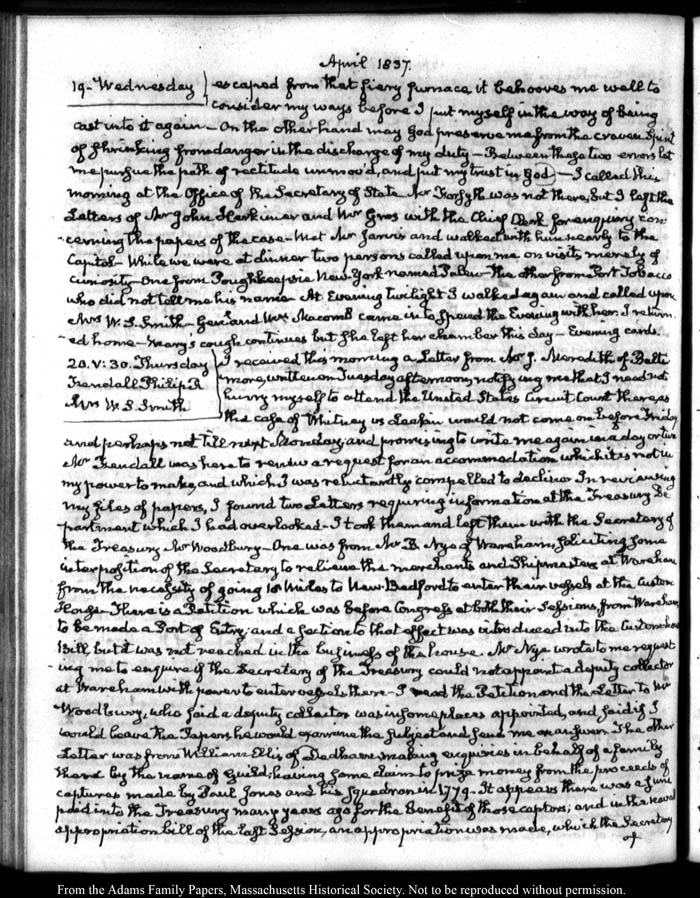 April 1837.
19. Wednesday escaped from that fiery furnace it behooves me well to
consider my ways before I put myself in the way of being
cast into it again. On the other hand may God preserve me from the craven Spirit
of shrinking from danger in the discharge of my duty — Between those two errors let
me pursue the path of rectitude unmov'd, and put my trust in God — I called this
morning at the Office of the Secretary of State Mr Forsyth was not there, but I left the
Letters of Mr John Harkiner and Mr Gros with the Chief Clerk for enquiry con-
-cerning the papers of the case — Met Mr Jarvis and walked with him nearly to the
Capitol — While we were at dinner two persons called upon me on visits merely of
curiosity — One from Poughkeepsie New-York named — the other from Port Tobacco
who did not tell me his name — At Evening twilight I walked again and called upon
Mrs W. S. Smith — Genl and Mrs Macomb came in to spend the Evening with her. I return-
-ed home — Mary's cough continues but she left her chamber this day — Evening cards.
20. V: 30. Thursday I received this morning a Letter from Mr J. Meredith of Balti-
Frendall Philip R more, written on Tuesday afternoon, notifying me that I need not
Mrs W. S. Smith hurry myself to attend the United States Circuit Court there, as
the case of Whitney vs Leakin would not come on before Friday
and perhaps not till next Monday; and promising to write me again in a day or two
Mr Frendall was here to renew a request for an accommodation which it is not in
my power to make, and which I was reluctantly compelled to decline. In reviewing
my files of papers, I found two Letters requiring information at the Treasury De-
-partment which I had overlooked — I took them and left them with the Secretary of
the Treasury Mr Woodbury — One was from Mr B. Nye of Wareham, soliciting some
interposition of the Secretary to relieve the merchants and Shipmasters at Wareham
from the necessity of going 18 miles to New Bedford to enter their vessels at the Custom
House. There is a Petition which was before Congress at both their Sessions, from Wareham
to be made a Port of Entry; and a section to that effect was introduced into the Custom house
Bill but it was not reached in the business of the house. Mr Nye wrote to me request-
-ing me to enquire if the Secretary of the Treasury could not appoint a deputy collector
at Wareham with power to enter vessels there — I read the Petition and the Letter to Mr
Woodbury, who said a deputy collector was in some places appointed, and said if I
would leave the Papers he would examine the subject and send me an answer. The other
Letter was from William Ellis of Dedham, making enquiries in behalf of a family
there by the name of Guild; having some claim to prize money from the proceeds of
captures made by Paul Jones and his squadron in 1779. It appears there was a fund
paid into the Treasury many years ago for the benefit of those captors; and in the naval
appropriation bill of the last Session, an appropriation was made, which the Secretary
of
From the Adams Family Papers, Massachusetts Historical Society. Not to be reproduced without permission.